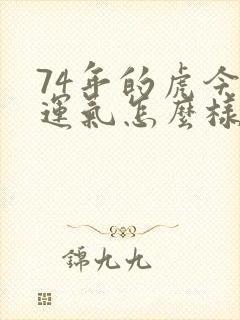 74年的虎今
運氣怎麼樣
錦九九